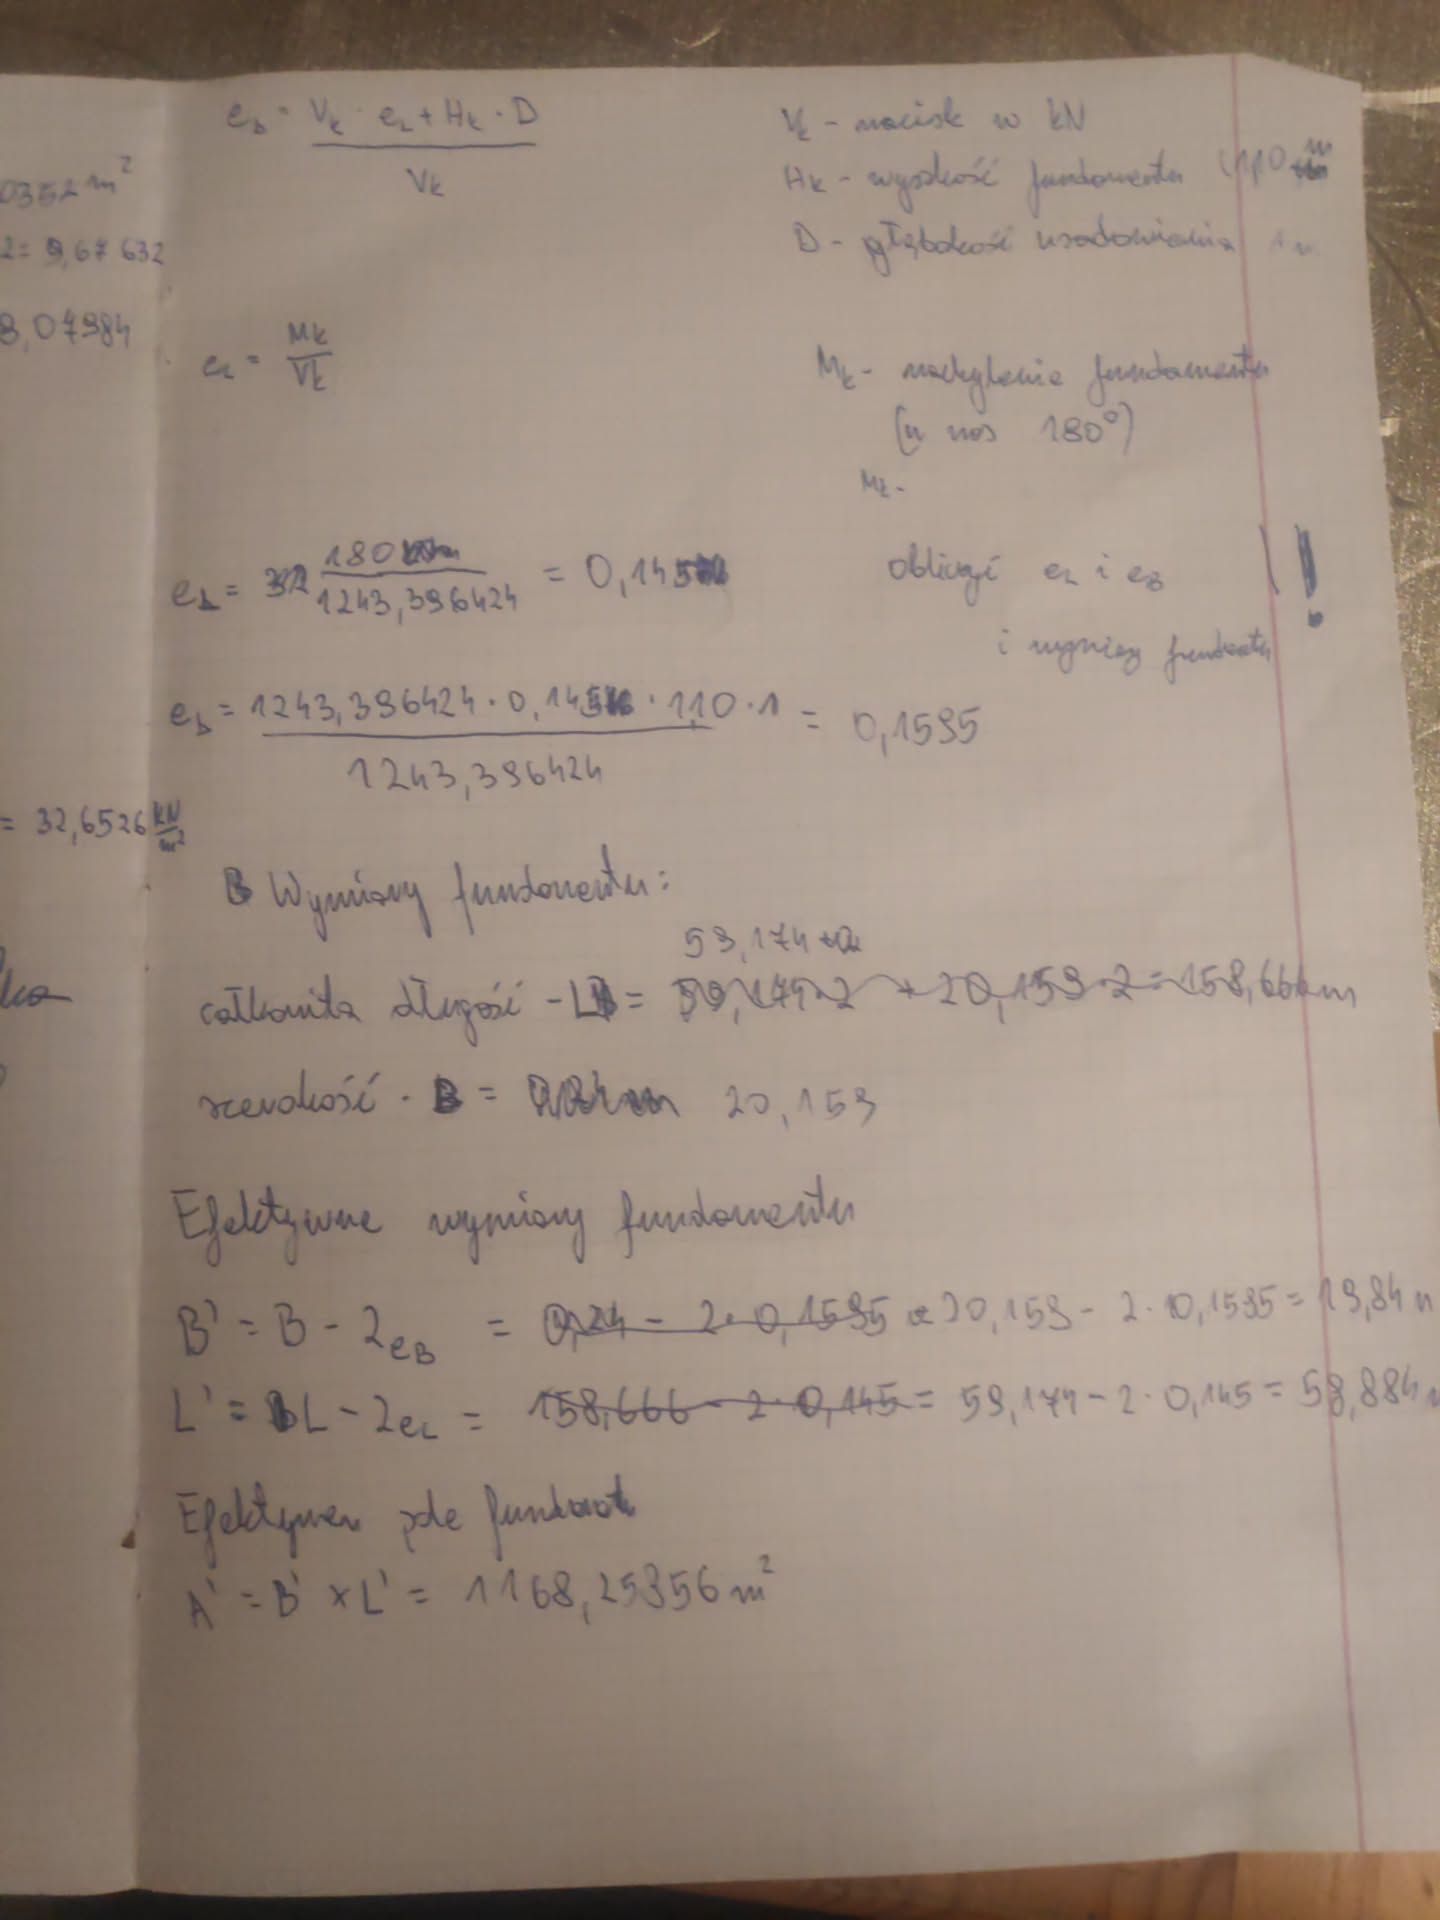 e_B = V_k · e_L + H_k · D
V_k
V_k - nacisk w kN
H_k - wysokość fundamentu 1,10 m
D - głębokość usadowienia 1 m
0352 m²
2 = 9,67632
8,07984
e_L = M_k / V_k
M_k - nachylenie fundamentu
(u nas 180°)
M_k -
e_L = 180 / 1243,396424 = 0,145
obliczyć e_L i e_B !
i wymiary
e_B = 1243,396424 · 0,145 · 1,10 · 1 = 0,1595
1243,396424
= 32,6526 kN/m²
Wymiary fundamentu:
59,174
całkowita długość - L = 59,174·2 + 20,159·2 = 158,666m
szerokość - B = 20,159
Efektywne wymiary fundamentu
B' = B - 2e_B = 0,24 - 2·0,1595 = 20,159 - 2·0,1595 = 19,84 m
L' = L - 2e_L = 158,666 - 2·0,145 = 59,174 - 2·0,145 = 58,884
pole
A' = B' × L' = 1168,25856 m²